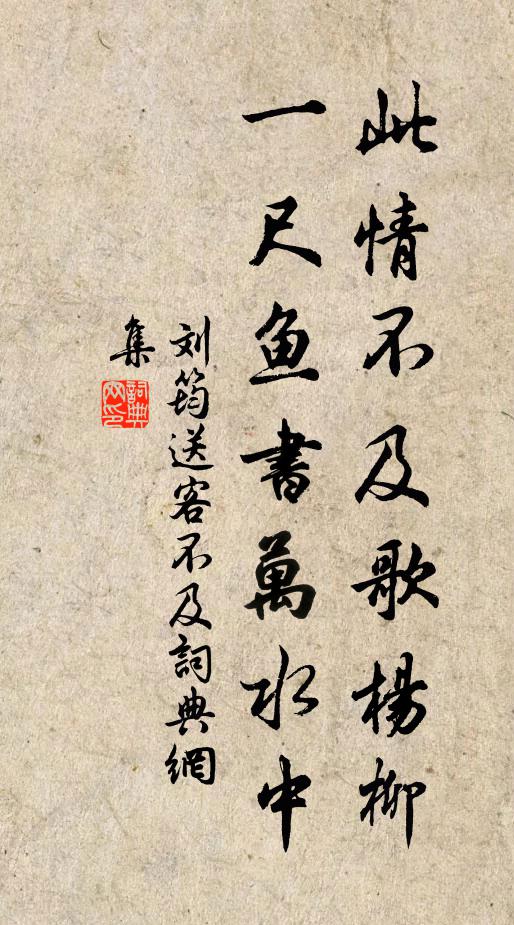 此情不及歌楊柳
一尺鱼書萬水中
刘筠送客不及詞典網
集
詞典
网印